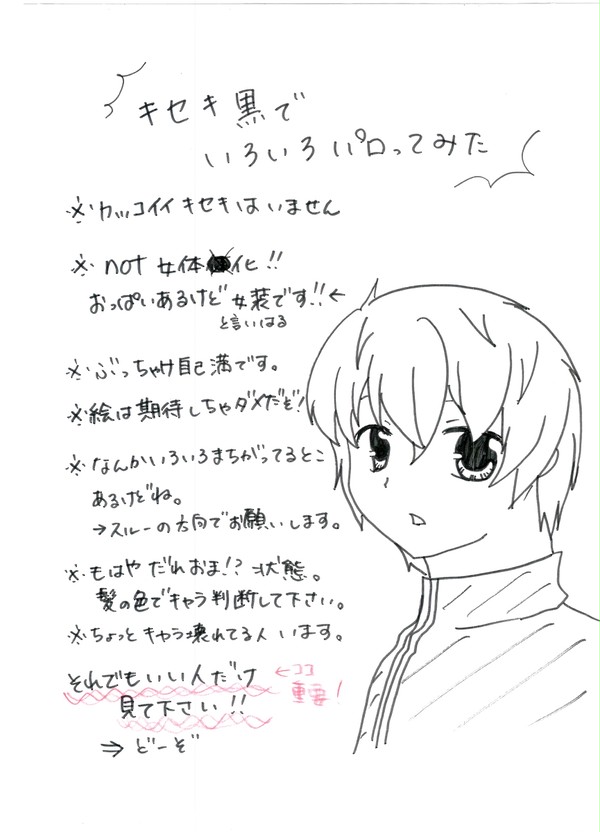 キセキ黒で
いろいろパロってみた
※カッコイイキセキはいません
※not 女体化!!
おっぱいあるけど女装です!!←
と言いはる
※ぶっちゃけ自己満です。
※絵は期待しちゃダメだぞ!
※なんかいろいろまちがってるとこ
あるけどね。
→スルーの方向でお願いします。
※もはやだれおま!?状態。
髪の色でキャラ判断して下さい。
※ちょっとキャラ壊れてる人います。
それでもいい人だけ ←ココ
見て下さい!! 重要!
⇒ どーぞ